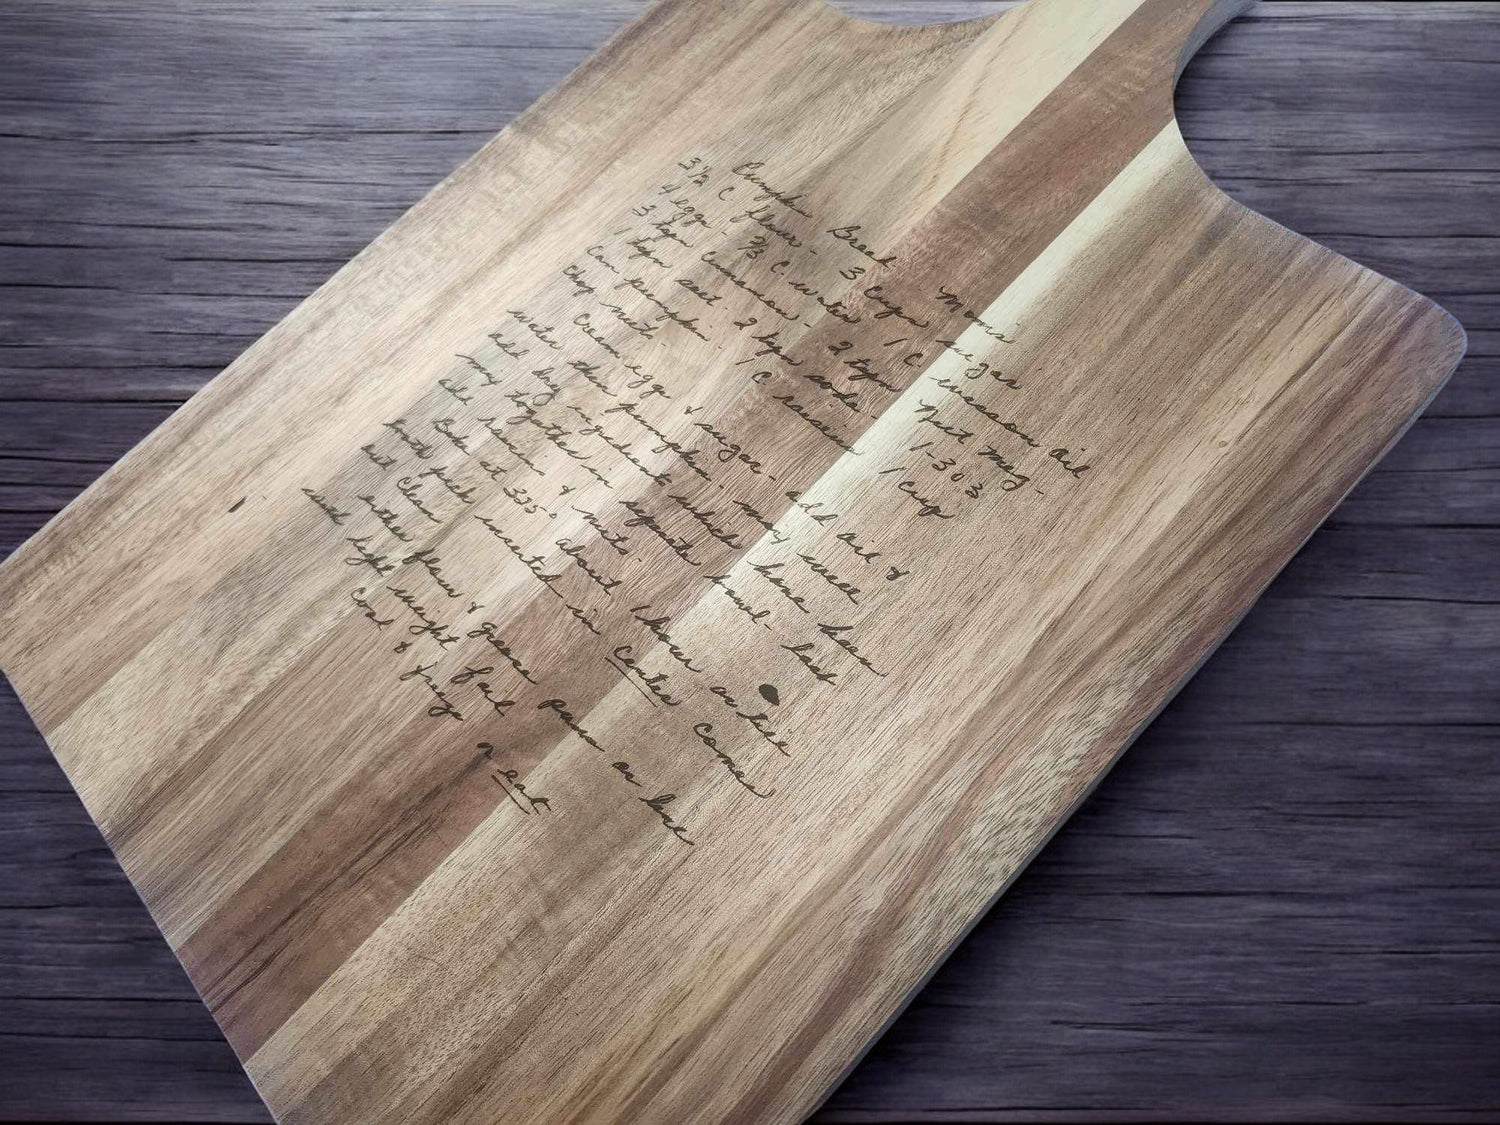 Pumpkin Bread Moms
3 1/2 C flower - 3 Cups sugar
4 eggs - 2/3 C. water 1 C wesson oil
3 tspn Cinnamon - 2 tspn Nut Meg -
1 tspn salt - 2 tspn soda - 1-303
Can pumpkin 1 C raisin 1 Cup
Chop nuts -
Cream eggs & sugar - add oil &
water then pumpkin. mix well
add dry ingredients which have been
mix together in seperate bowl - last
add raisins & nuts.
Bake at 325-0 about 1 hour or till
tooth pick inserted in Center Comes
out Clean
either flour & grease pans or line
with light weight foil
Cool & freeze
or eat